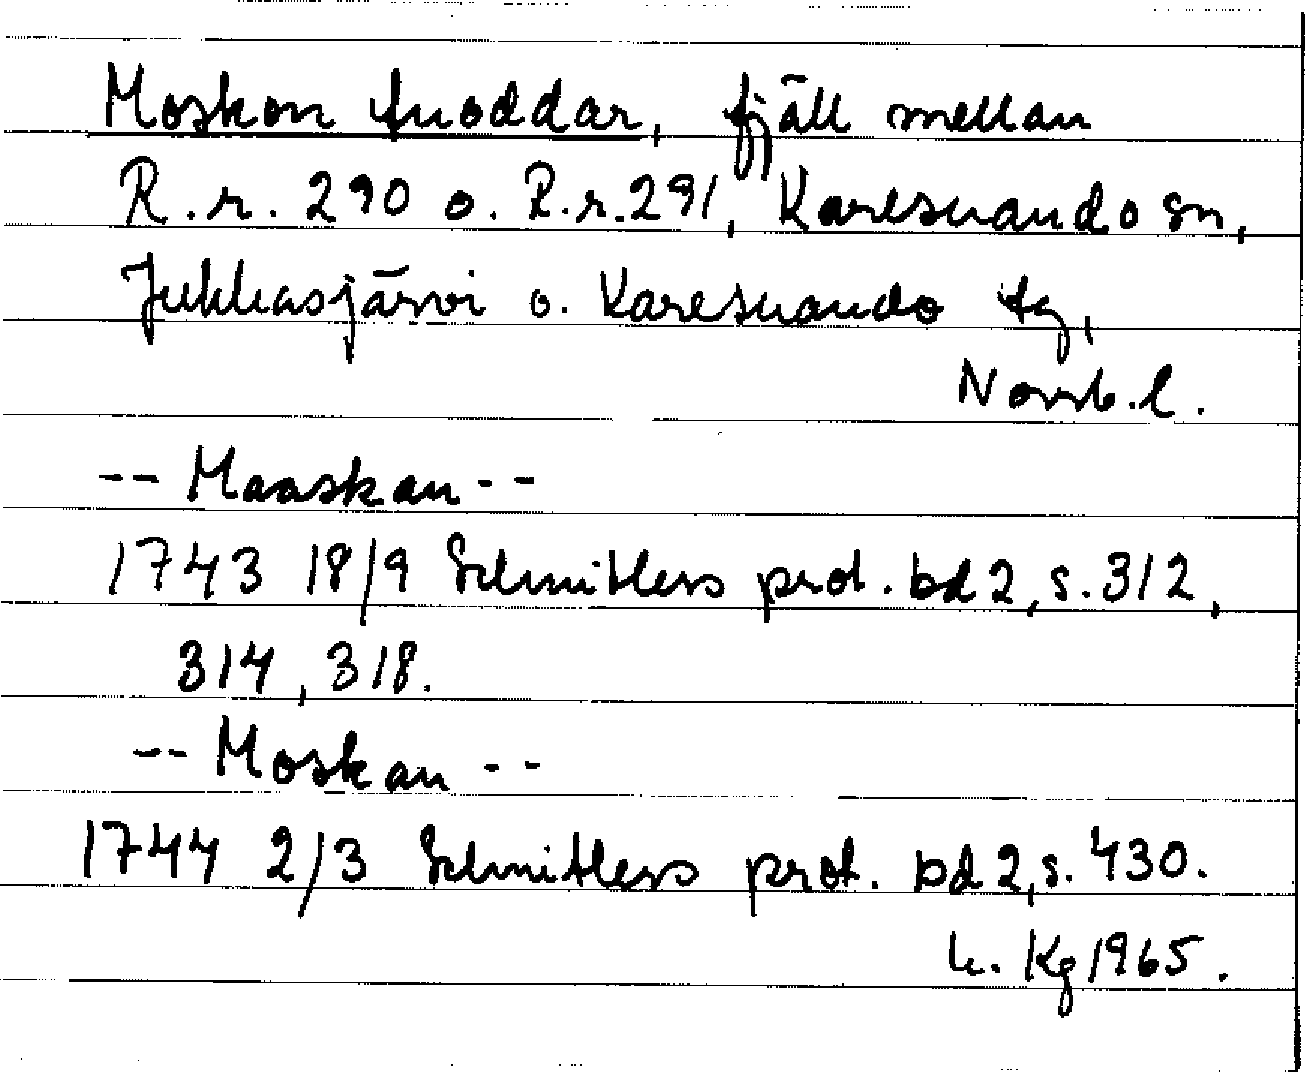 Moskon tuoddar, fjäll mellan
R.r. 290 o. R.r. 291, Karesuando sn,
Jukkasjärvi o. Karesuando tg,
Norrb.l.
-- Maaskan --
1743 18/9 Schnitlers prot. bd 2, s. 312,
314, 318.
-- Moskan --
1744 2/3 Schnitlers prot. bd 2, s. 430.
Kg 1965.